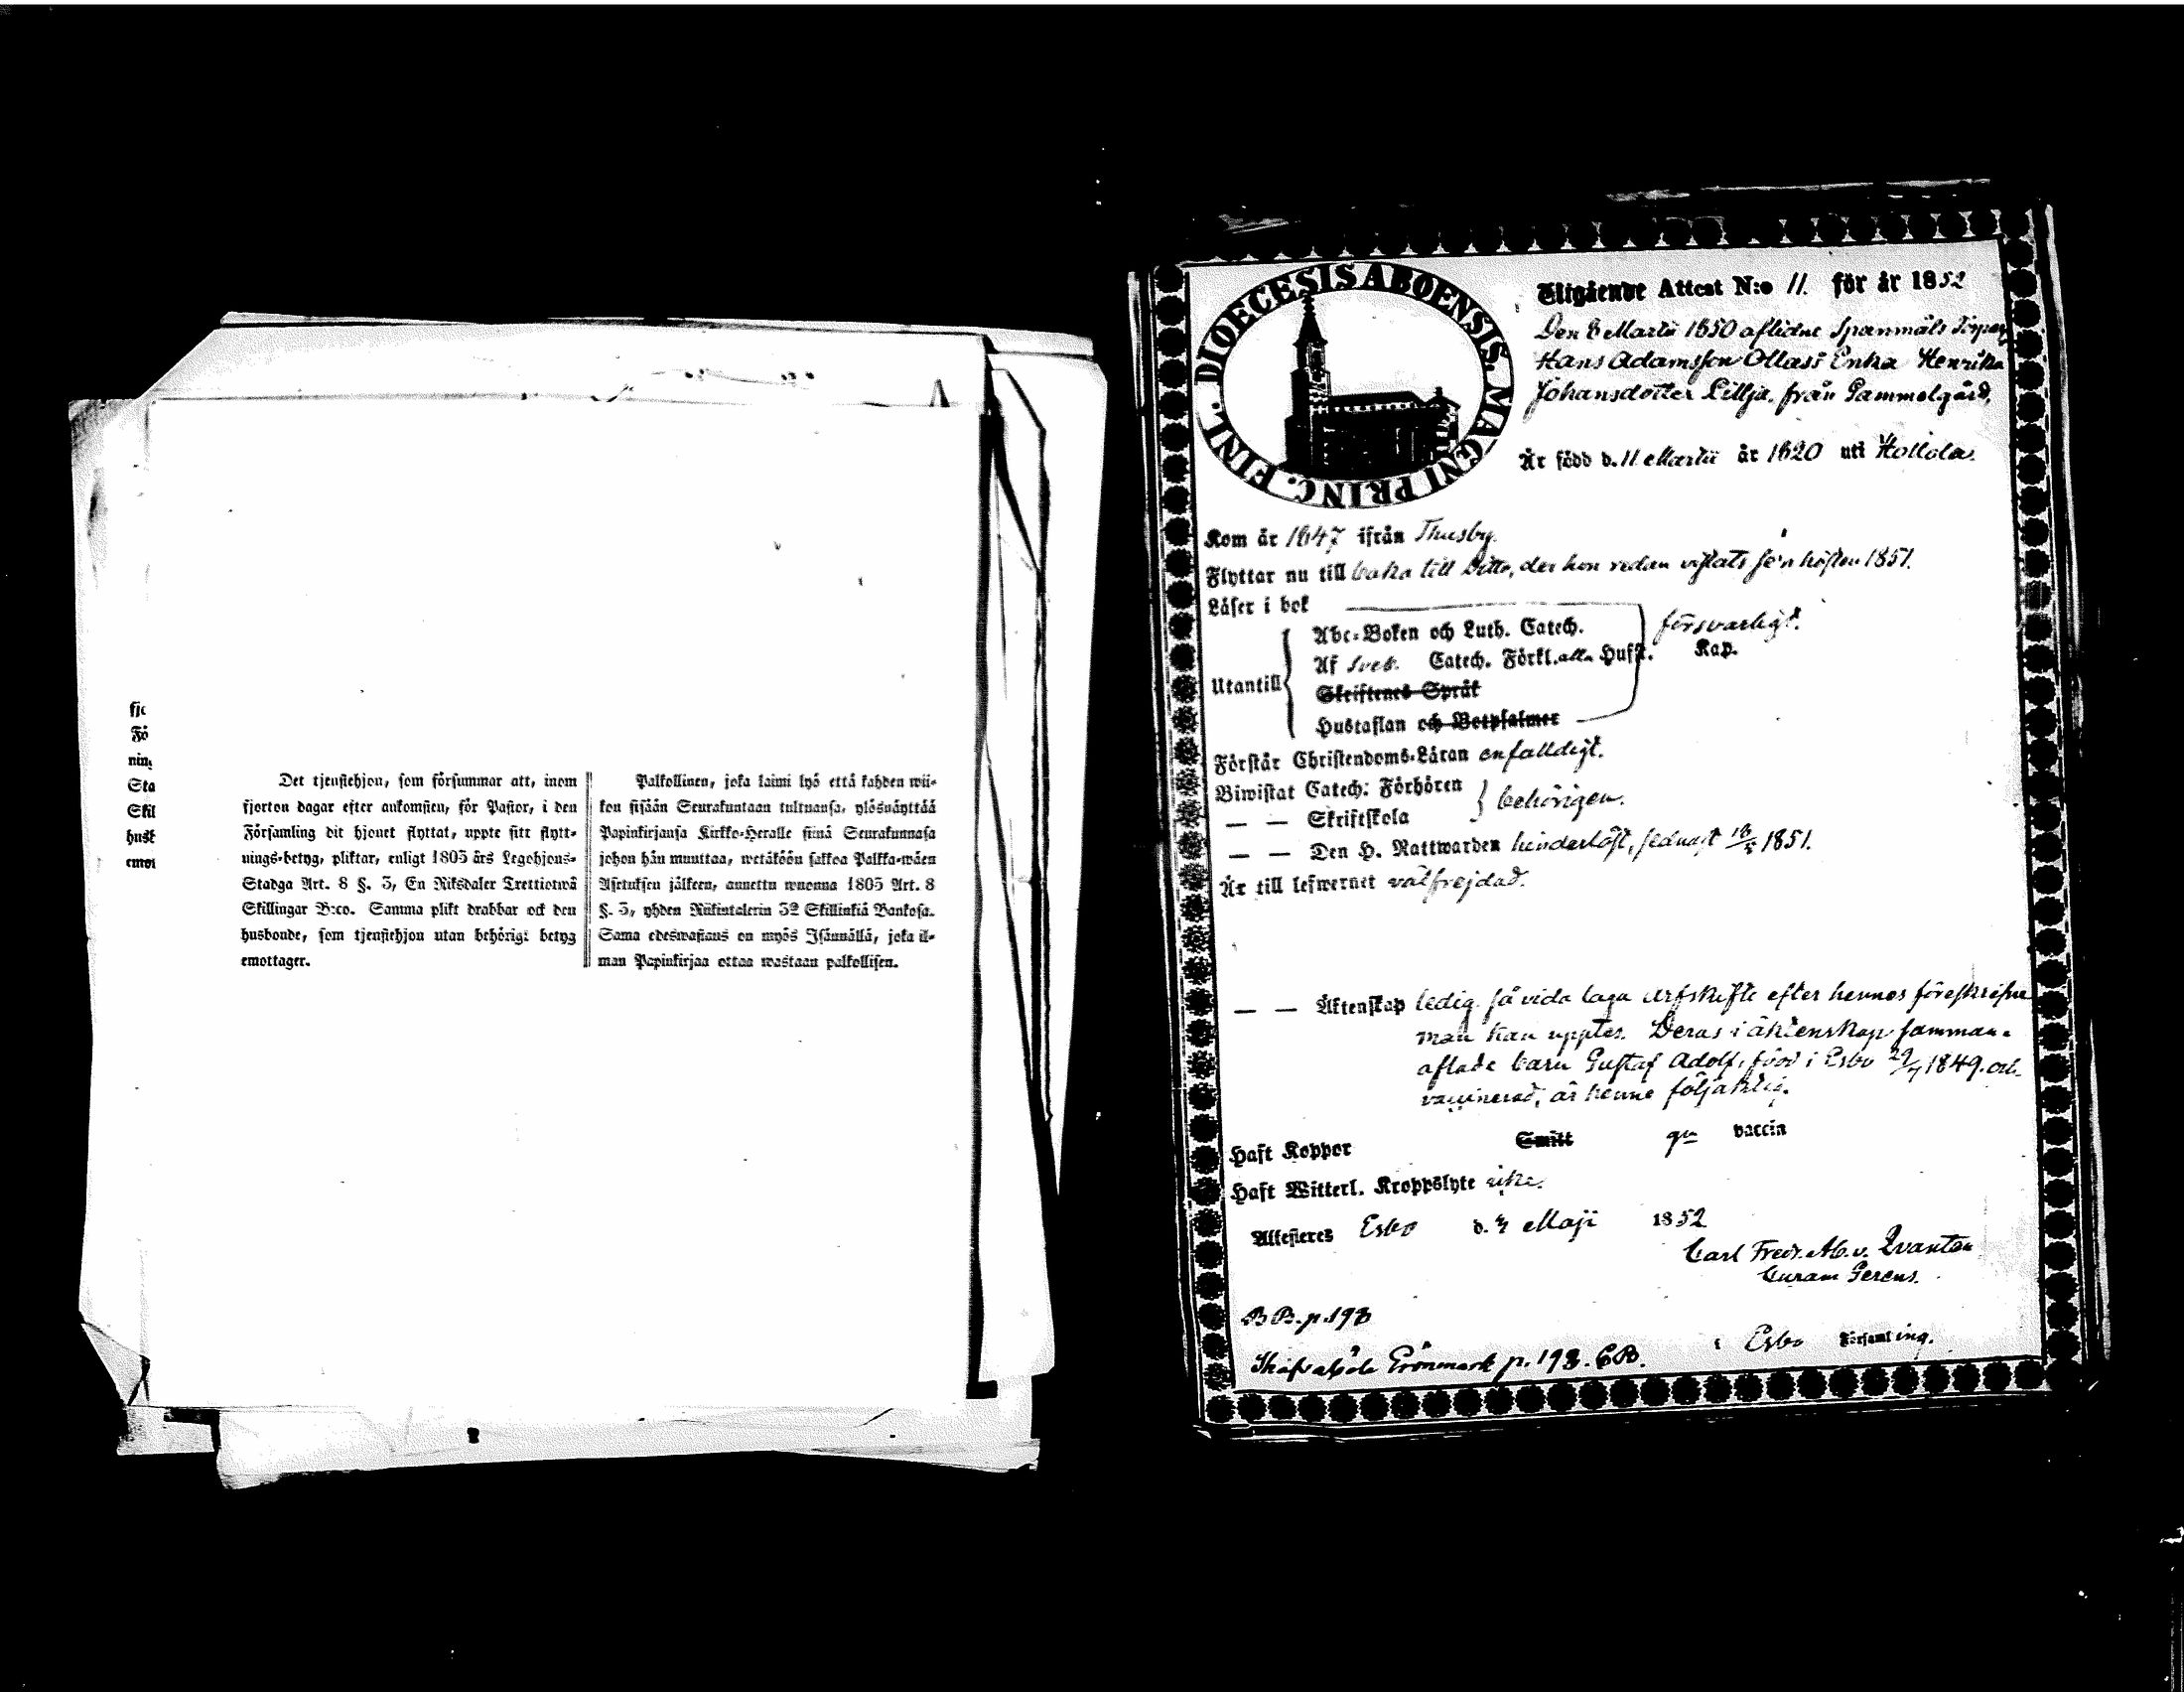 fjo
Fö
ning
Sta
Skil
husb
emot
Det tjenstehjon, som försummar att, inom
fjorton dagar efter ankomsten, för Pastor, i den
Församling dit hjonet flyttat, uppte sitt flytt-
nings-betyg, pliktar, enligt 1805 års Legohjons-
Stadga Art. 8 §. 3, En Riksdaler Trettiotwå
Skillingar B:co. Samma plikt drabbar ock den
husbonde, som tjenstehjon utan behörigt betyg
emottager.
Palkollinen, joka laimi lyö että kahden wii-
kon sisään Seurakuntaan tultuansa, ylösnäyttää
Papinkirjansa Kirkko-Heralle siinä Seurakunnasa
johon hän muuttaa, wetäköön sakkoa Palkka-wäen
Asetuksen jälkeen, annettu wuonna 1805 Art. 8
§. 3, yhden Riikintalerin 32 Skillinkiä Bankosa.
Sama edeswastaus on myös Isännällä, joka il-
man Papinkirjaa ottaa wastaan palkollisen.
DIOECESIS ABOENSIS. MAGNI PRINC. FINL.
Utgående Attest N:o 11. för år 1852
Den 8 Martii 1850 aflidne Spanmåls Torpar
Hans Adamsson Ollas's Enka Henrika
Johansdotter Lillja, från Gammelgård,
Är född d. 11 Martii år 1820 uti Hollola.
Kom år 1847 ifrån Thusby.
Flyttar nu till baka till ditto, der hon redan vistats se'n hösten 1851.
Läser i bok
Abc-Boken och Luth. Catech. försvarligt.
Utantill Af Sveb. Catech. Förkl. alla Husft. Kap.
Skriftenes Språk
Hustaflan och Botpsalmer
Förstår Christendoms-Läran enfalldigt.
Biwistat Catech: Förhören behörigen.
— — Skriftskola
— — Den H. Nattwarden hinderlöst, sednast 1851.
Är till lefwernet välfrejdad.
— — Äktenskap ledig så vida laga arfskifte efter hennes föreskrifne
man kan upptes. Deras i äktenskap samman-
aflade barn Gustaf Adolf, född i Esbo 29/7 1849. och
vaccinerad, är henne följaktig.
Haft Koppor Smitt gm vaccin
Haft Witterl. Kroppslyte icke.
Attesteres Esbo d. 4 Maji 1852
Carl Fredr. Ab. v. Qvanten
Curam Gerens.
B B. p. 198
Grönmark p. 198. C B.
i Esbo Församling.